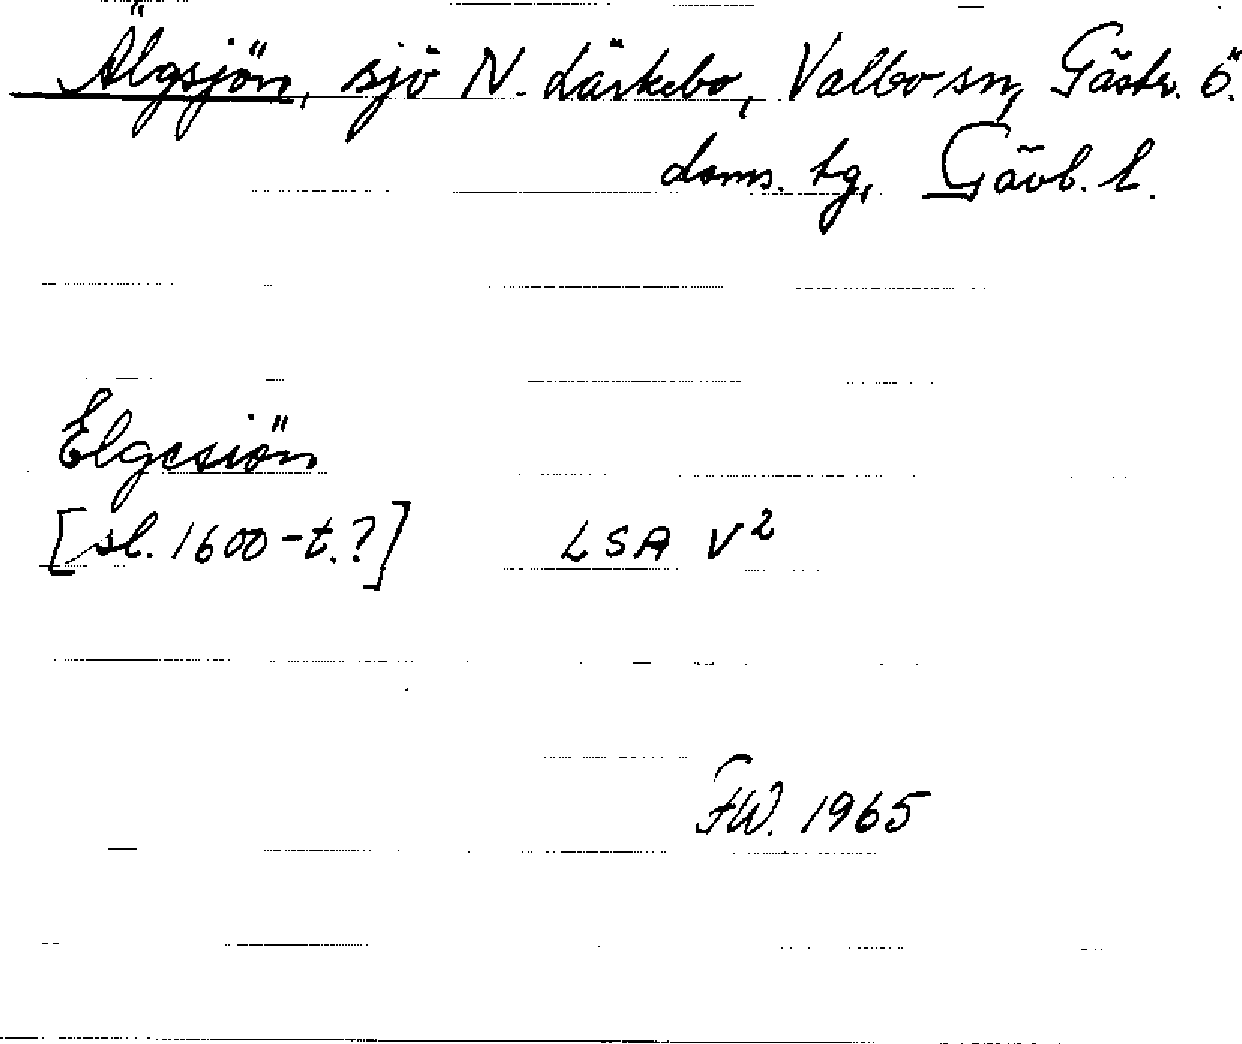 Älgsjön, sjö N. Lärkebo, Valbo sn, Gästr. ö.
doms. tg, Gävb. l.
Elgesiön
[sl. 1600-t.?] LSA V2
FW. 1965